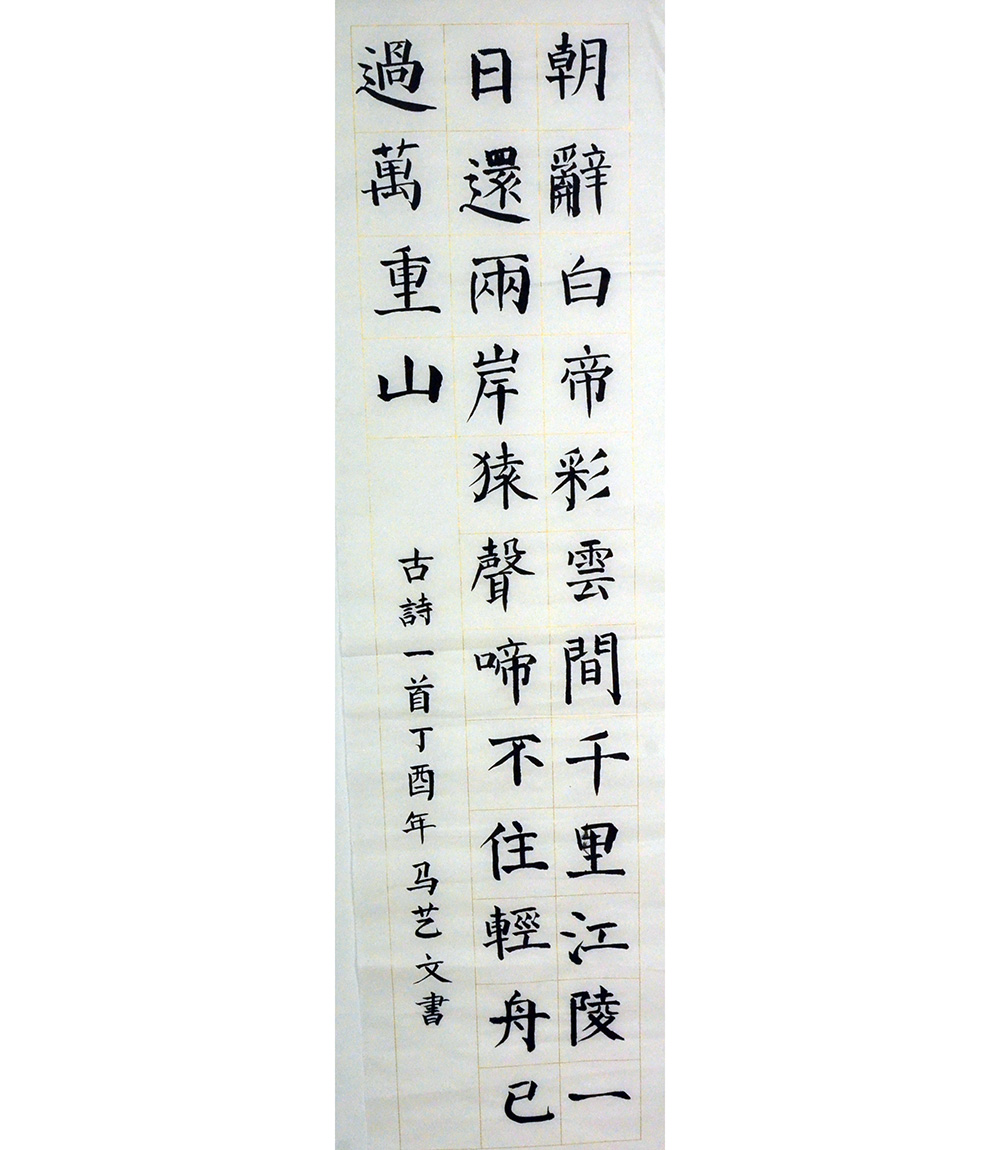 朝辭白帝彩雲間千里江陵一
日還兩岸猿聲啼不住輕舟已
過萬重山
古詩一首丁酉年马艺文書